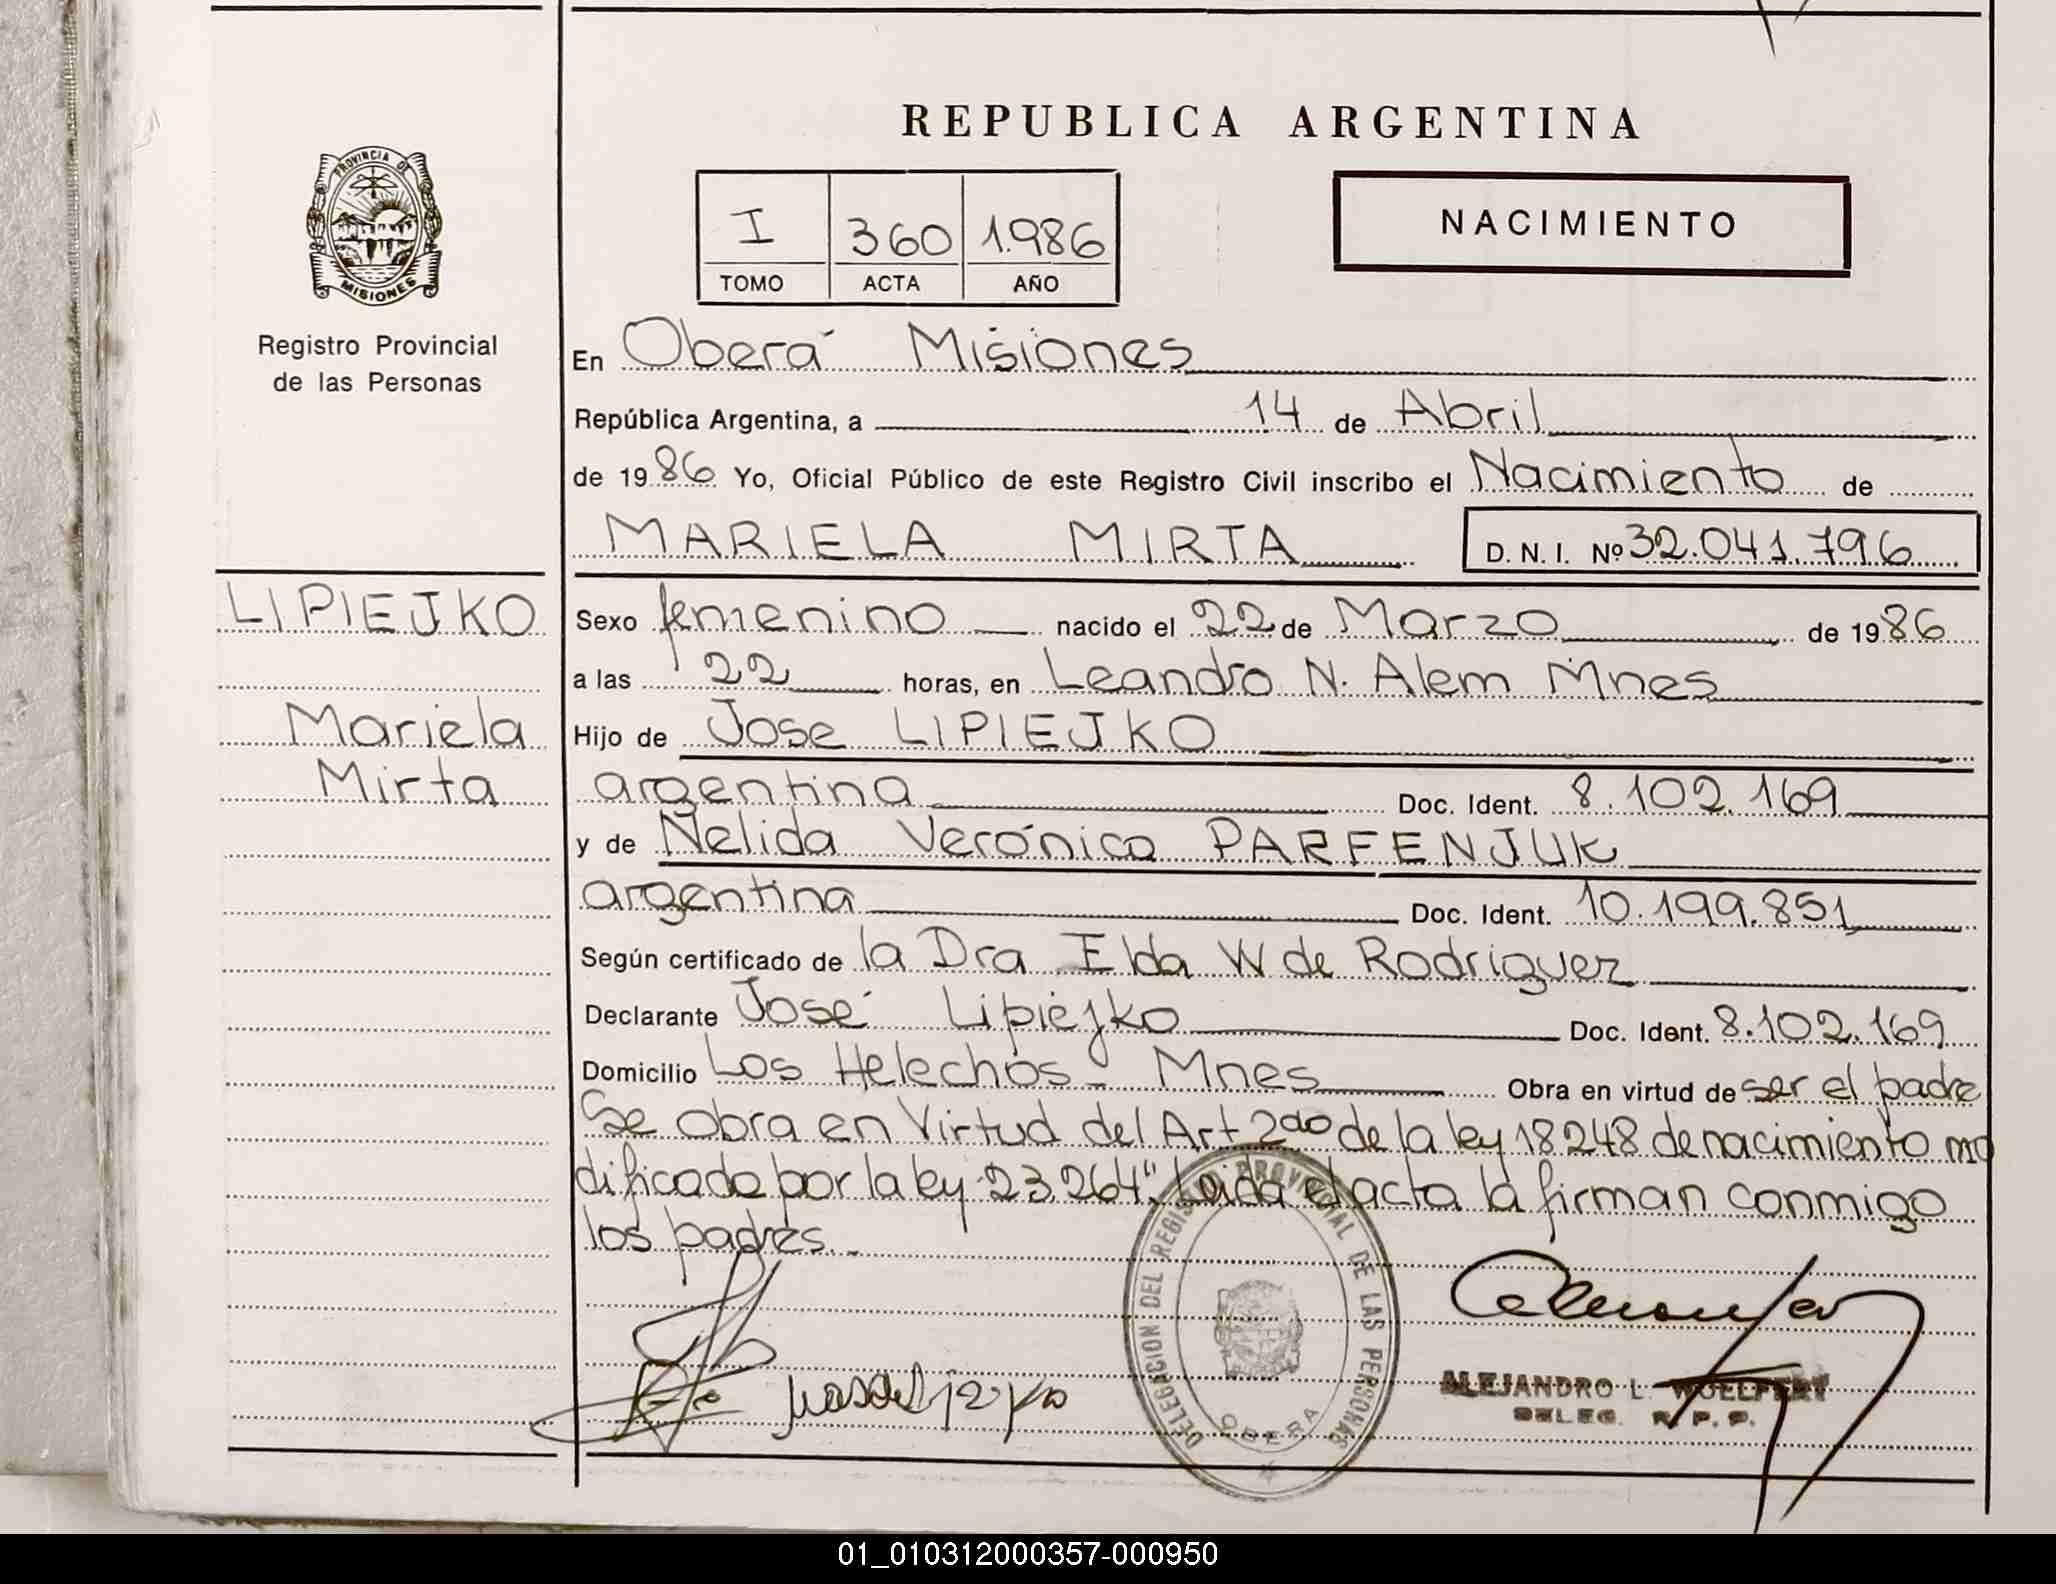 REPUBLICA ARGENTINA
PROVINCIA DE
MISIONES
Registro Provincial
de las Personas
I 360 1.986
TOMO ACTA AÑO
NACIMIENTO
En Oberá Misiones
República Argentina, a 14 de Abril
de 1986 Yo, Oficial Público de este Registro Civil inscribo el Nacimiento de
MARIELA MIRTA D. N. I. Nº 32.041.796
LIPIEJKO
Mariela
Mirta
Sexo femenino nacido el 22 de Marzo de 1986
a las 22 horas, en Leandro N. Alem Mnes
Hijo de Jose LIPIEJKO
argentina Doc. Ident. 8.102.169
y de Nelida Verónica PARFENJUK
argentina Doc. Ident. 10.199.851
Según certificado de la Dra Elda W de Rodriguez
Declarante José Lipiejko Doc. Ident. 8.102.169
Domicilio Los Helechos - Mnes Obra en virtud de ser el padre
Se obra en Virtud del Art 2do de la ley 18248 de nacimiento mo
dificada por la ley 23.264". Leida el acta la firman conmigo
los padres.
DELEGACION DEL REGISTRO PROVINCIAL DE LAS PERSONAS
OBERA
ALEJANDRO L. WOELFERT
DELEG. R. P. P.
01_010312000357-000950